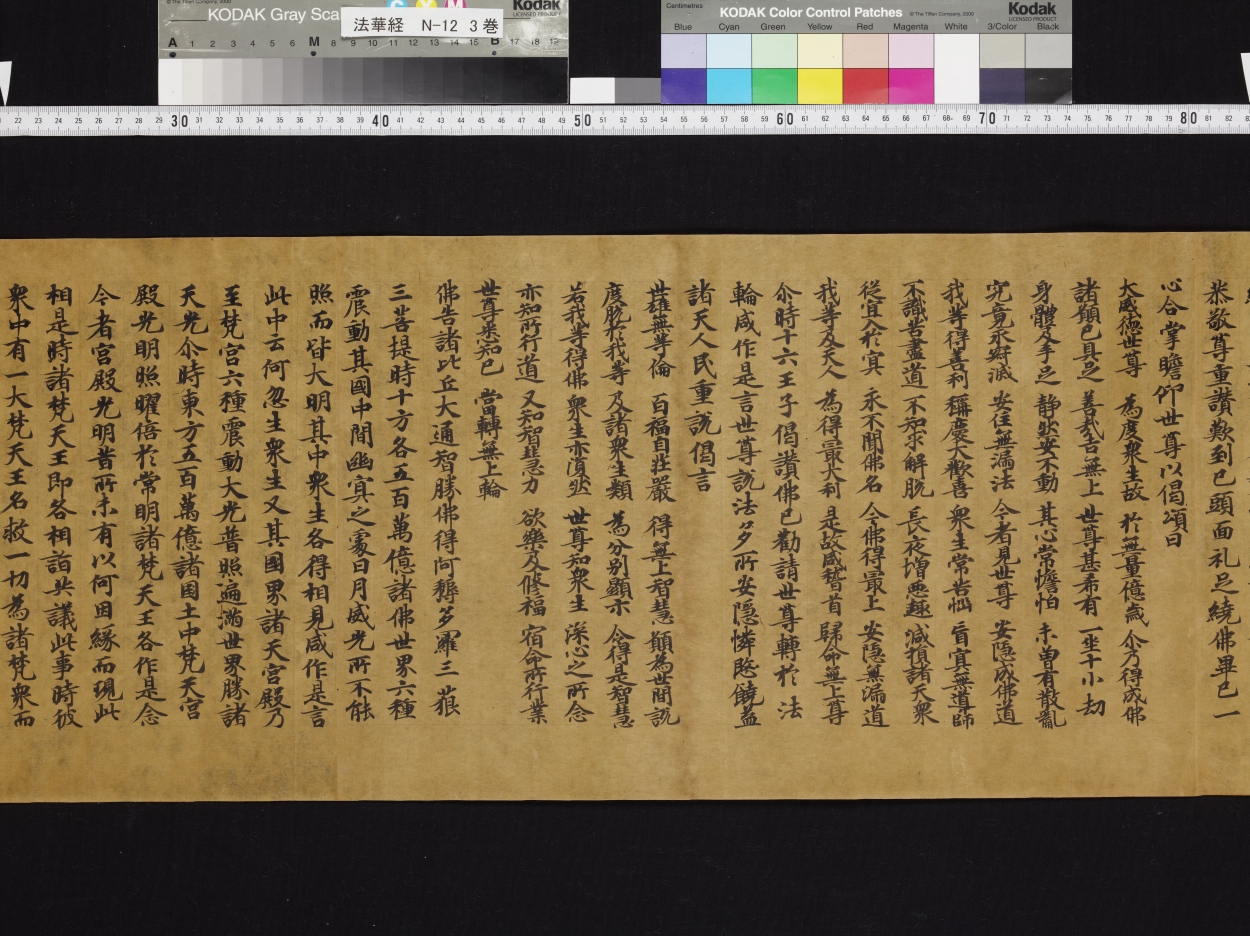 © The Tiffen Company, 2000
KODAK Gray Sca
C Y M
Kodak
LICENSED PRODUCT
法華経 N-12 3巻
A 1 2 3 4 5 6 M 8 9 10 11 12 13 14 15 B 17 18 19
Centimetres
KODAK Color Control Patches
© The Tiffen Company, 2000
Kodak
LICENSED PRODUCT
Blue Cyan Green Yellow Red Magenta White 3/Color Black
22 23 24 25 26 27 28 29 30 31 32 33 34 35 36 37 38 39 40 41 42 43 44 45 46 47 48 49 50 51 52 53 54 55 56 57 58 59 60 61 62 63 64 65 66 67 68 69 70 71 72 73 74 75 76 77 78 79 80 81 82
恭敬尊重讃歎到已頭面礼足繞佛畢已一
心合掌瞻仰世尊以偈頌曰
大威德世尊 為度衆生故 於無量億歲 尒乃得成佛
諸願已具足 善哉吉無上 世尊甚希有 一坐十小劫
身體及手足 静然安不動 其心常憺怕 未曽有散亂
究竟永寂滅 安住無漏法 今者見世尊 安隠成佛道
我等得善利 稱慶大歡喜 衆生常苦惱 盲冥無導師
不識苦盡道 不知求解脱 長夜増悪趣 減損諸天衆
従冥入於冥 永不聞佛名 今佛得最上 安隠無漏道
我等及天人 為得最大利 是故咸稽首 歸命無上尊
尒時十六王子偈讃佛已勸請世尊轉於法
輪咸作是言世尊説法多所安隠憐愍饒益
諸天人民重説偈言
世雄無等倫 百福自荘嚴 得無上智慧 願為世間説
度脱於我等 及諸衆生類 為分別顯示 令得是智慧
若我等得佛 衆生亦復然 世尊知衆生 深心之所念
亦知所行道 又知智慧力 欲樂及修福 宿命所行業
世尊悉知已 當轉無上輪
佛告諸比丘大通智勝佛得阿耨多羅三藐
三菩提時十方各五百萬億諸佛世界六種
震動其國中間幽冥之處日月威光所不能
照而皆大明其中衆生各得相見咸作是言
此中云何忽生衆生又其國界諸天宮殿乃
至梵宮六種震動大光普照遍満世界勝諸
天光尒時東方五百萬億諸国土中梵天宮
殿光明照曜倍於常明諸梵天王各作是念
今者宮殿光明昔所未有以何因縁而現此
相是時諸梵天王即各相詣共議此事時彼
衆中有一大梵天王名救一切為諸梵衆而